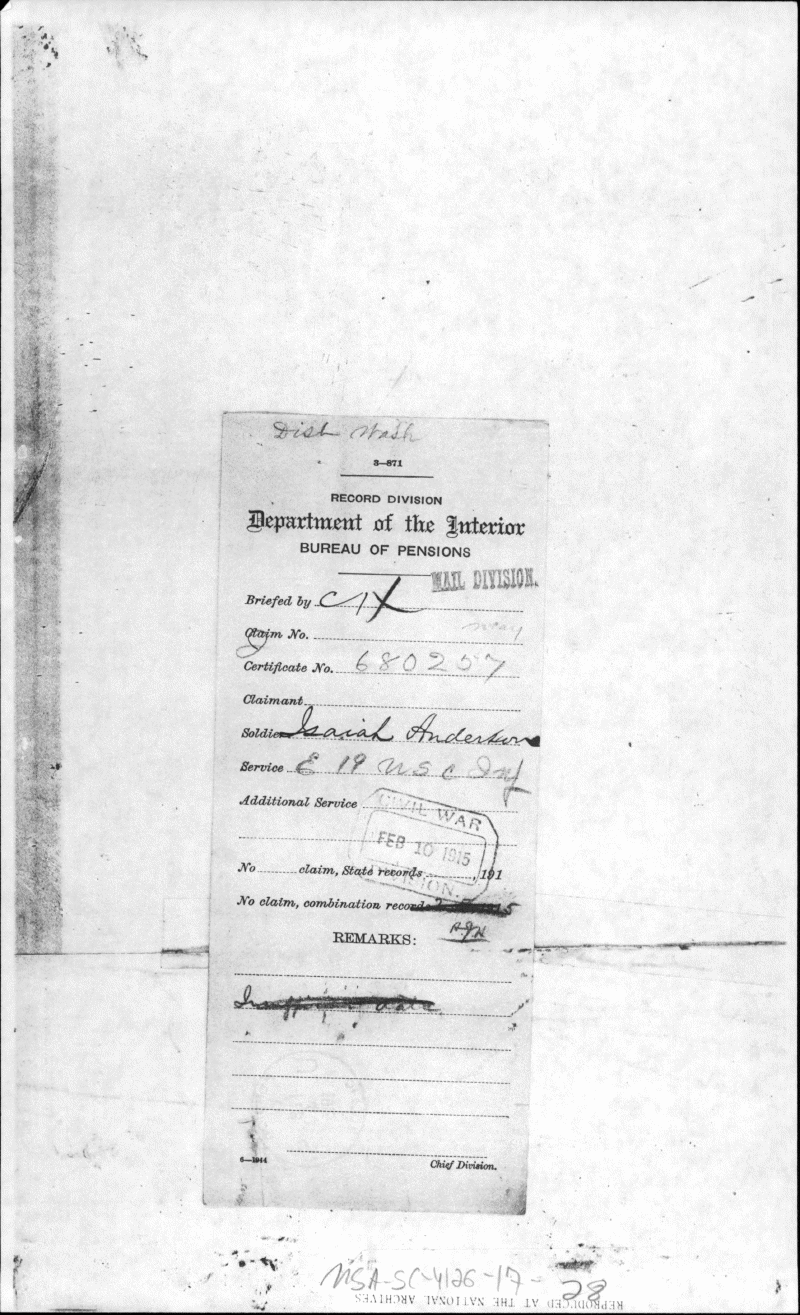 Dist Wash
3—871
RECORD DIVISION
Department of the Interior
BUREAU OF PENSIONS
MAIL DIVISION.
Briefed by
Claim No.
Certificate No. 680257
Claimant
Soldier Isaiah Anderson
Service E 19 U S C Inf
Additional Service
CIVIL WAR
FEB 10 1915
DIVISION.
No claim, State records , 191
No claim, combination records
REMARKS:
6—1944
Chief Division.
MSA-SC-4126-17-28
REPRODUCED AT THE NATIONAL ARCHIVES